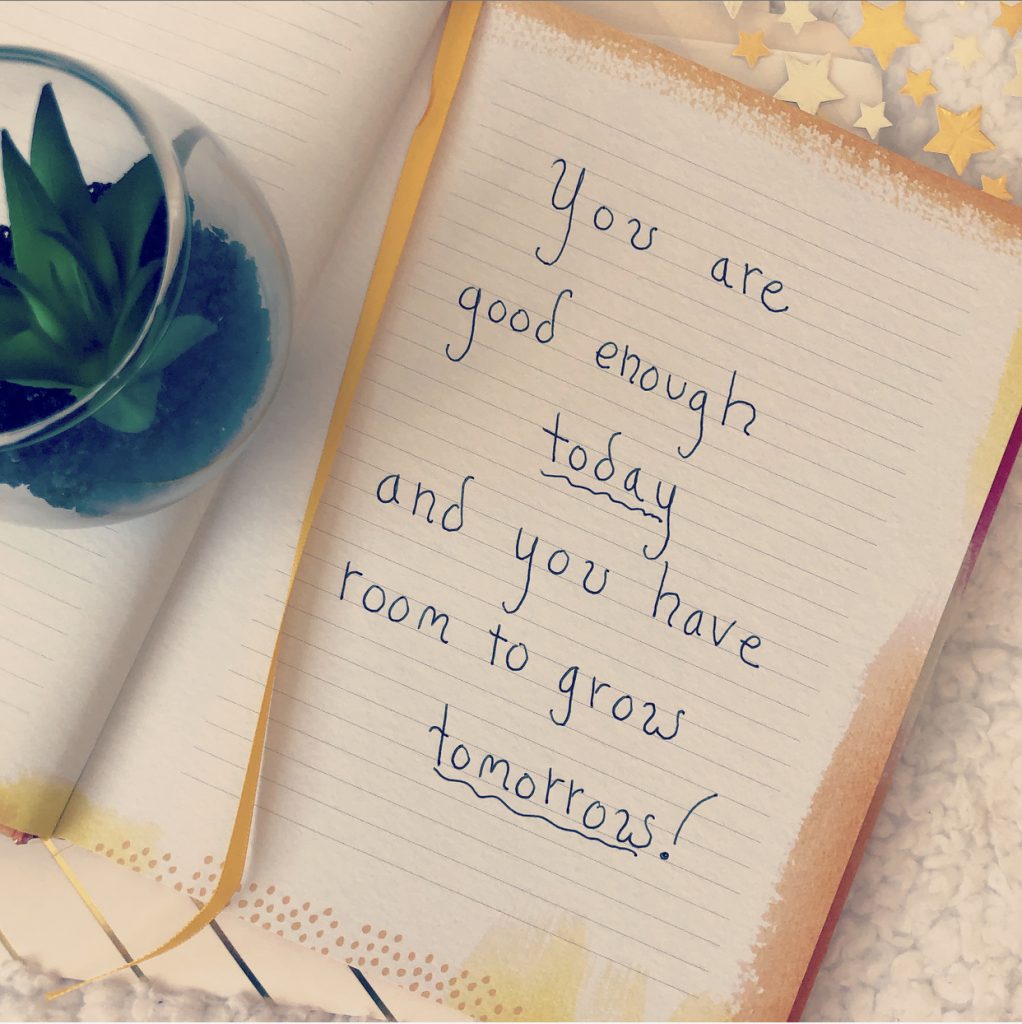 You are
good enough
today
and you have
room to grow
tomorrow!